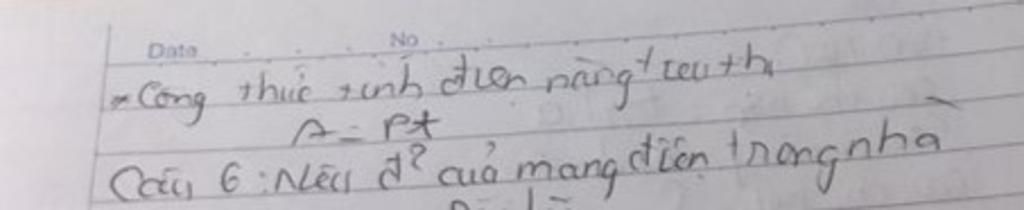 Date No
- Công thức tính điện năng tiêu thụ
A = Pt
Câu 6: Nêu đ² của mạng điện trong nhà